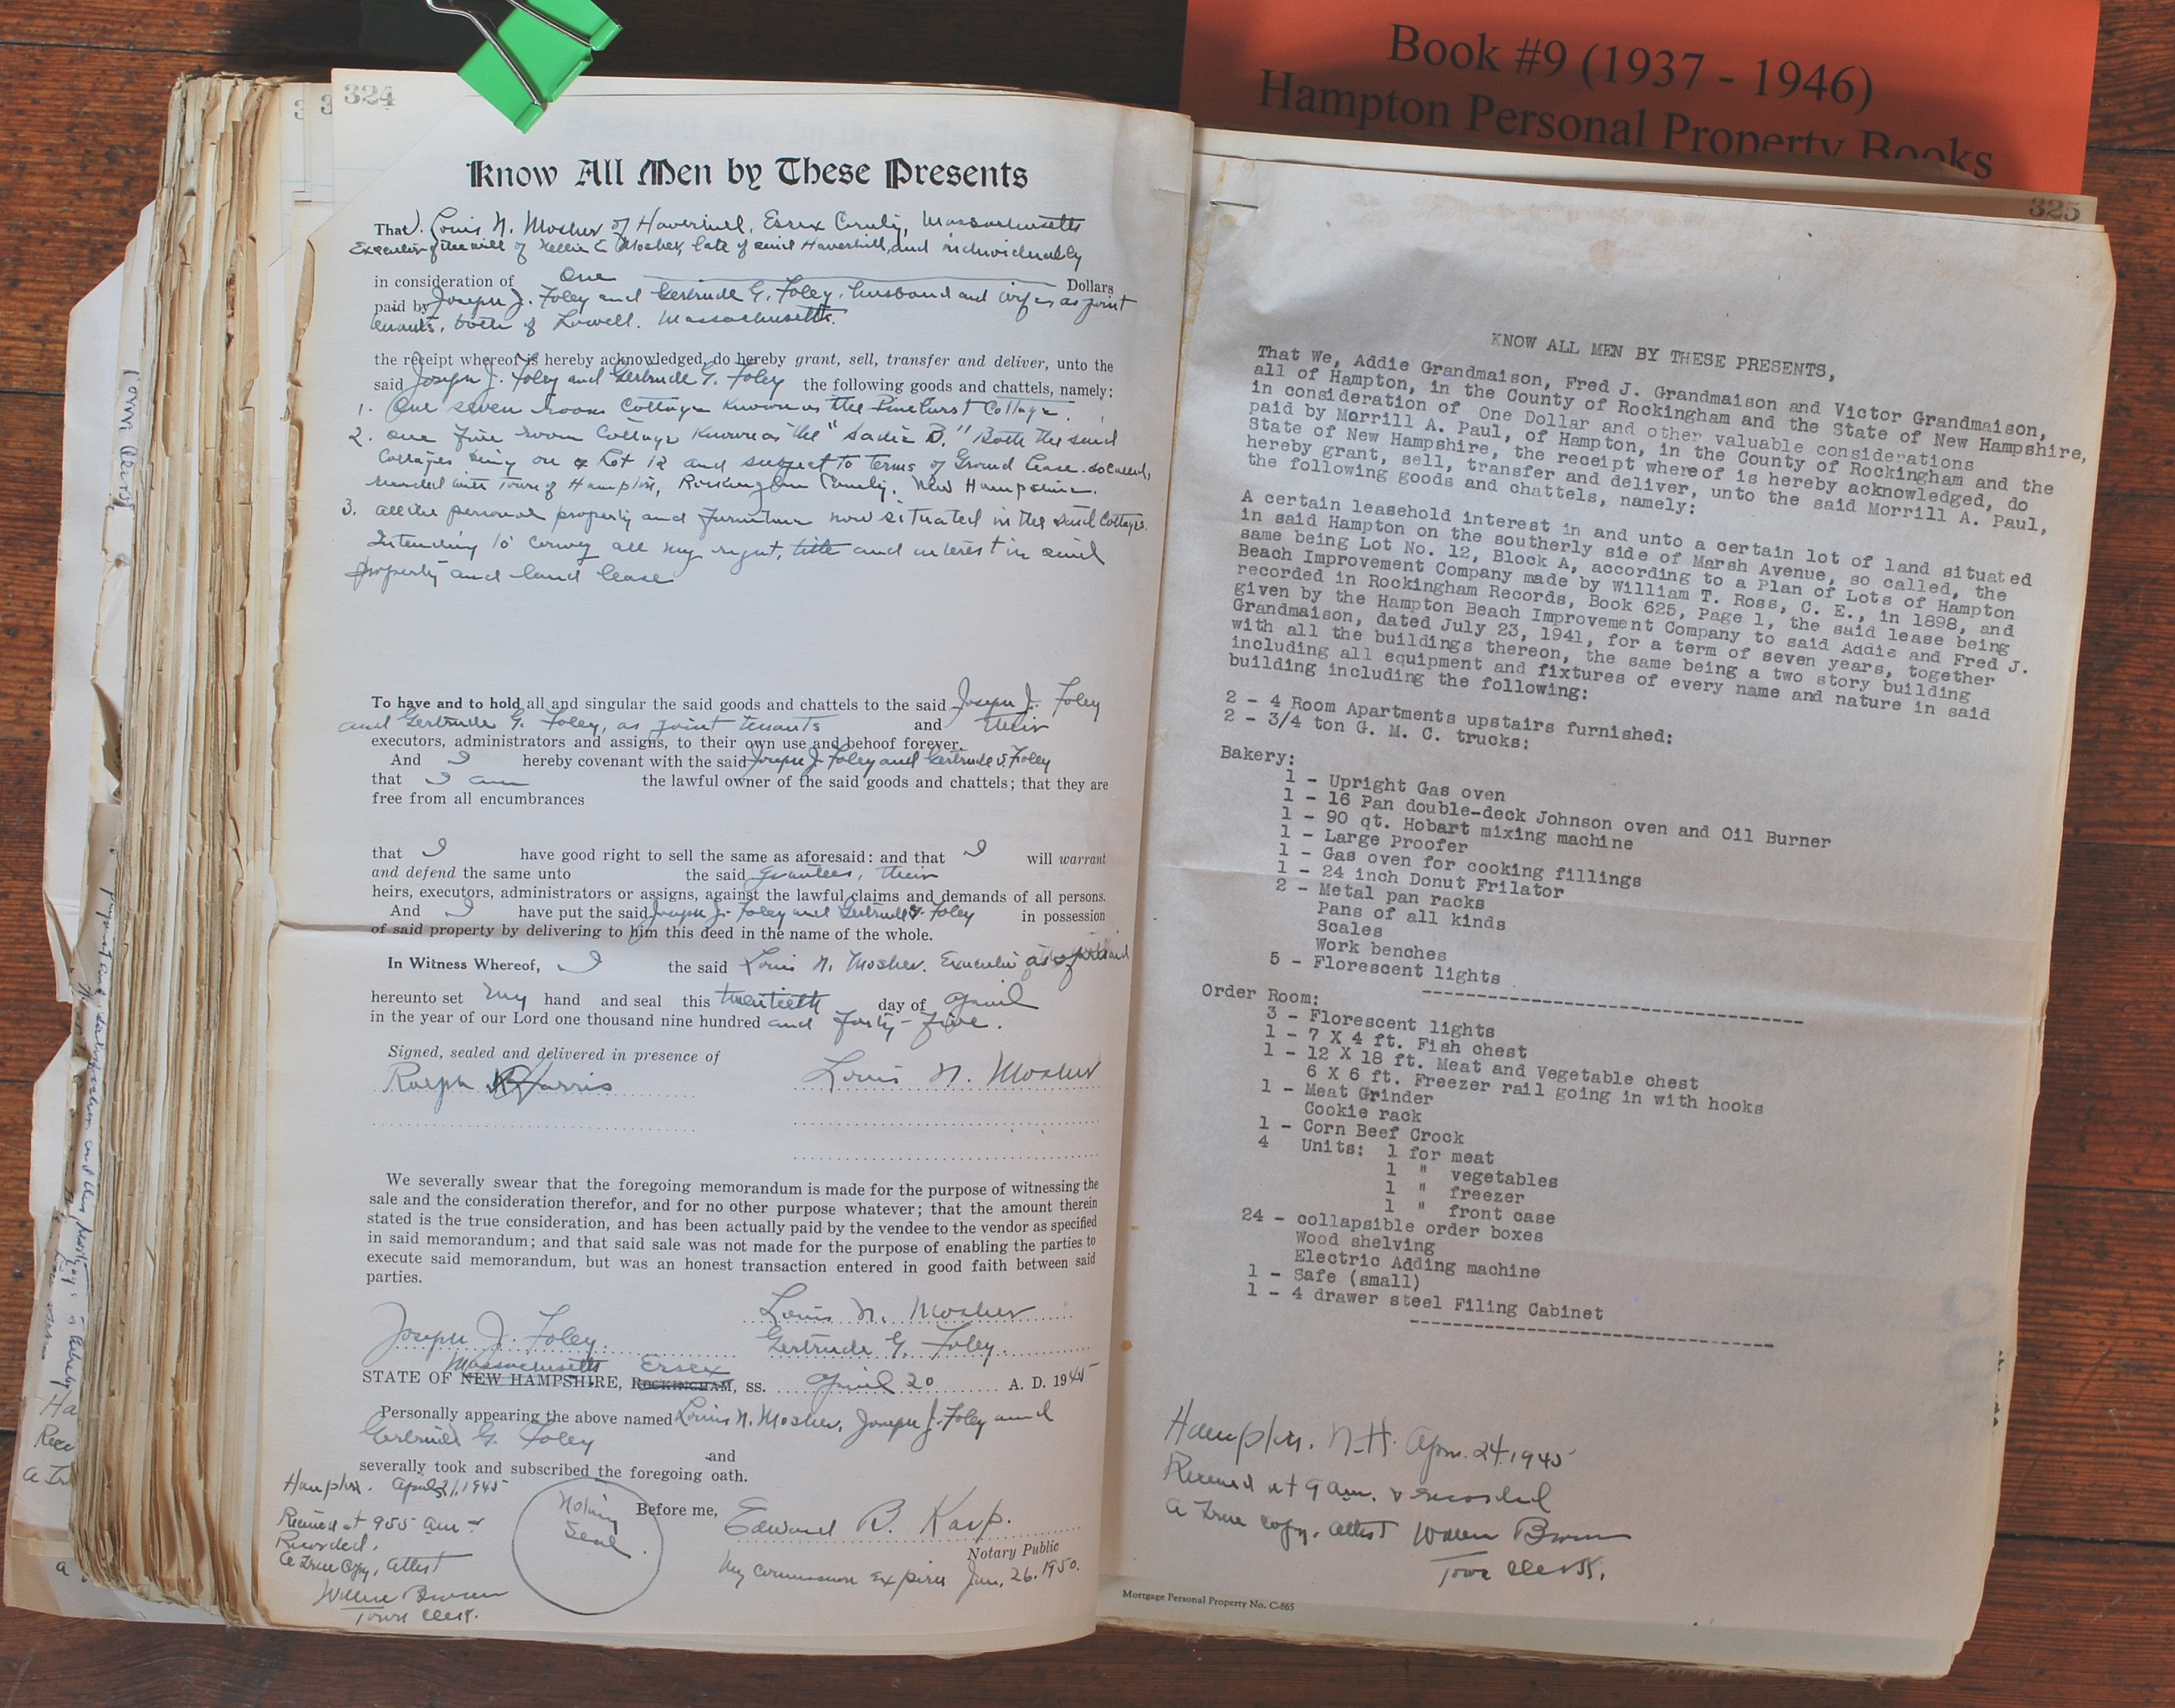 Book #9 (1937 - 1946)
Hampton Personal Property Books
324
Know All Men by These Presents
That I, Louis N. Mosher of Haverhill, Essex County, Massachusetts
Executor of the will of Nellie E. Mosher, late of said Haverhill, and individually
in consideration of One Dollars
paid by Joseph J. Foley and Gertrude G. Foley, husband and wife as joint
tenants, both of Lowell. Massachusetts.
the receipt whereof is hereby acknowledged, do hereby grant, sell, transfer and deliver, unto the
said Joseph J. Foley and Gertrude G. Foley the following goods and chattels, namely:
1. One seven room Cottage known as the Pinehurst Cottage.
2. One five room Cottage known as the "Sadie B." Both the said
Cottages being on Lot 12 and subject to terms of Ground Lease so called,
recorded with Town of Hampton, Rockingham County, New Hampshire.
3. all the personal property and furniture now situated in the said Cottages.
Intending to convey all my right, title and interest in said
property and land lease
To have and to hold all and singular the said goods and chattels to the said Joseph J. Foley
and Gertrude G. Foley, as joint tenants and their
executors, administrators and assigns, to their own use and behoof forever.
And I hereby covenant with the said Joseph J. Foley and Gertrude G. Foley
that I am the lawful owner of the said goods and chattels; that they are
free from all encumbrances
that I have good right to sell the same as aforesaid: and that I will warrant
and defend the same unto the said Grantees, their
heirs, executors, administrators or assigns, against the lawful claims and demands of all persons.
And I have put the said Joseph J. Foley and Gertrude G. Foley in possession
of said property by delivering to him this deed in the name of the whole.
In Witness Whereof, I the said Louis N. Mosher. Executor as aforesaid
hereunto set my hand and seal this twentieth day of April
in the year of our Lord one thousand nine hundred and forty-five.
Signed, sealed and delivered in presence of
Ralph Harris Louis N. Mosher
We severally swear that the foregoing memorandum is made for the purpose of witnessing the
sale and the consideration therefor, and for no other purpose whatever; that the amount therein
stated is the true consideration, and has been actually paid by the vendee to the vendor as specified
in said memorandum; and that said sale was not made for the purpose of enabling the parties to
execute said memorandum, but was an honest transaction entered in good faith between said
parties.
Louis N. Mosher
Joseph J. Foley Gertrude G. Foley
Massachusetts Essex
STATE OF NEW HAMPSHIRE, ROCKINGHAM, ss. April 20 A. D. 1945
Personally appearing the above named Louis N. Mosher, Joseph J. Foley and
Gertrude G. Foley and
severally took and subscribed the foregoing oath.
Hampton. April 21, 1945
Received at 955 am
Recorded.
A True Copy, Attest
Town Clerk.
Notary
Seal
Before me, Edward B. Karp.
Notary Public
My commission expires Jan. 26. 1950.
325
KNOW ALL MEN BY THESE PRESENTS,
That We, Addie Grandmaison, Fred J. Grandmaison and Victor Grandmaison,
all of Hampton, in the County of Rockingham and the State of New Hampshire,
in consideration of One Dollar and other valuable considerations
paid by Morrill A. Paul, of Hampton, in the County of Rockingham and the
State of New Hampshire, the receipt whereof is hereby acknowledged, do
hereby grant, sell, transfer and deliver, unto the said Morrill A. Paul,
the following goods and chattels, namely:
A certain leasehold interest in and unto a certain lot of land situated
in said Hampton on the southerly side of Marsh Avenue, so called, the
same being Lot No. 12, Block A, according to a Plan of Lots of Hampton
Beach Improvement Company made by William T. Ross, C. E., in 1898, and
recorded in Rockingham Records, Book 625, Page 1, the said lease being
given by the Hampton Beach Improvement Company to said Addie and Fred J.
Grandmaison, dated July 23, 1941, for a term of seven years, together
with all the buildings thereon, the same being a two story building
including all equipment and fixtures of every name and nature in said
building including the following:
2 - 4 Room Apartments upstairs furnished:
2 - 3/4 ton G. M. C. trucks:
Bakery:
1 - Upright Gas oven
1 - 16 Pan double-deck Johnson oven and Oil Burner
1 - 90 qt. Hobart mixing machine
1 - Large Proofer
1 - Gas oven for cooking fillings
1 - 24 inch Donut Frilator
2 - Metal pan racks
Pans of all kinds
Scales
Work benches
5 - Florescent lights
Order Room:
3 - Florescent lights
1 - 7 X 4 ft. Fish chest
1 - 12 X 18 ft. Meat and Vegetable chest
6 X 6 ft. Freezer rail going in with hooks
1 - Meat Grinder
Cookie rack
1 - Corn Beef Crock
4 Units: 1 for meat
1 " vegetables
1 " freezer
1 " front case
24 - collapsible order boxes
Wood shelving
Electric Adding machine
1 - Safe (small)
1 - 4 drawer steel Filing Cabinet
Hampton. N.H. Apr. 24. 1945
Received at 9 am. & recorded
A True copy, attest
Town Clerk.
Mortgage Personal Property No. C-865